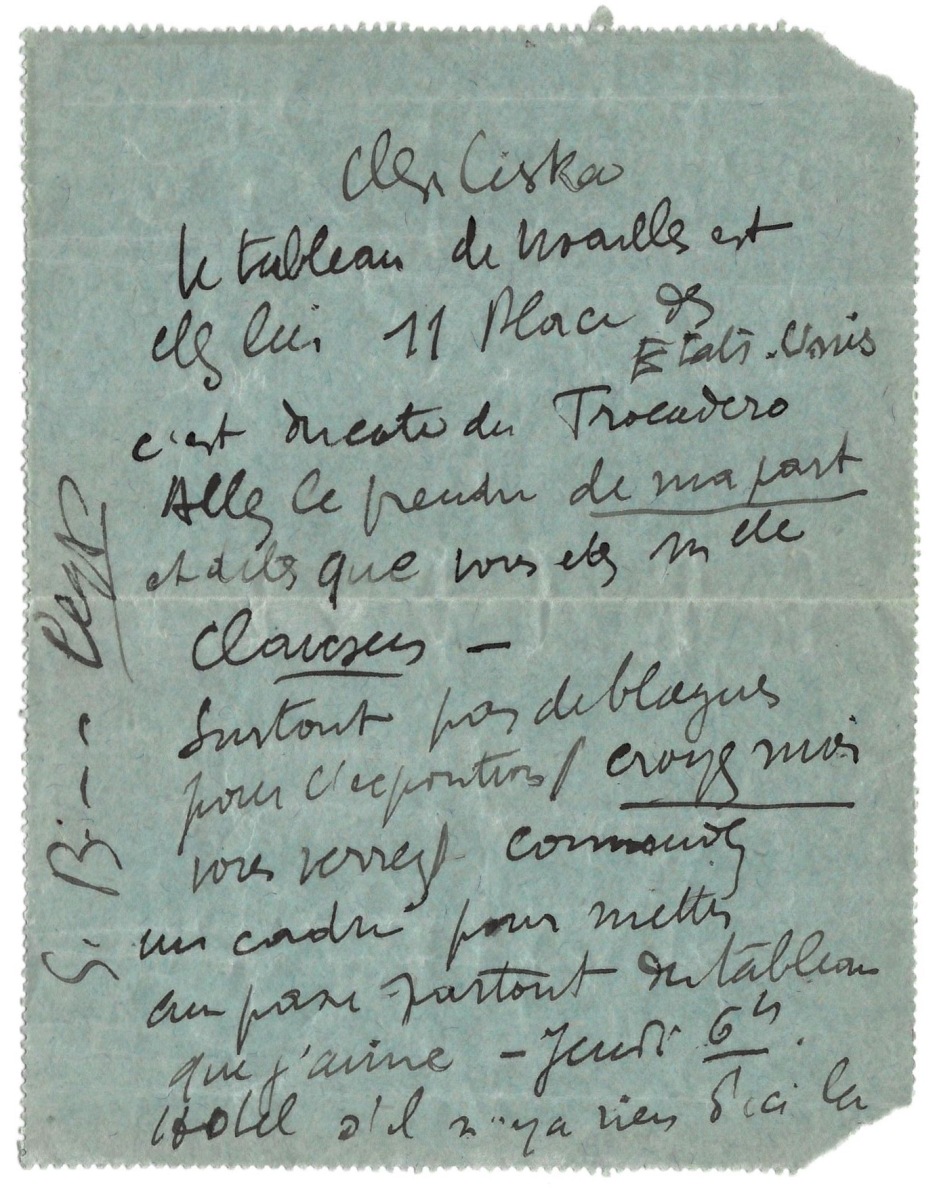 Cher Ciska
le tableau de Noailles est
chez lui 11 Place des
États-Unis
c'est du coté du Trocadero
Allez le prendre de ma part
et dites que vous etes m elle
Clausens —
Surtout pas de blagues
pour l'exposition / croyez moi
vous verrez / commandez
un cadre pour mettre
au passe-partout du tableau
que j'aime — Jeudi 6h.
Hotel s'il n'y a rien d'ici la